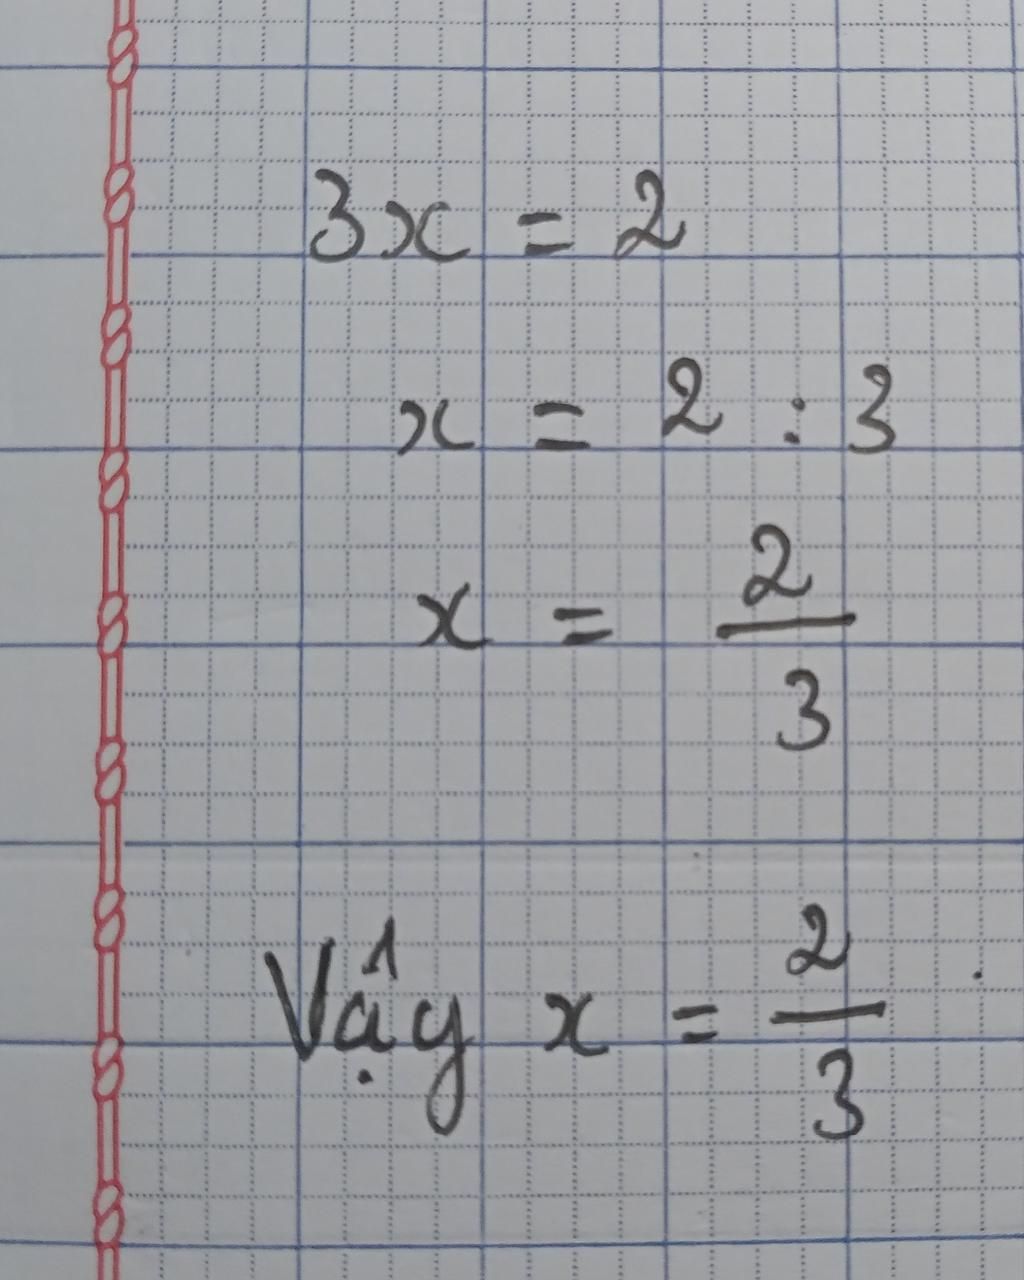 3x = 2
x = 2 : 3
x = 2/3
Vậy x = 2/3.